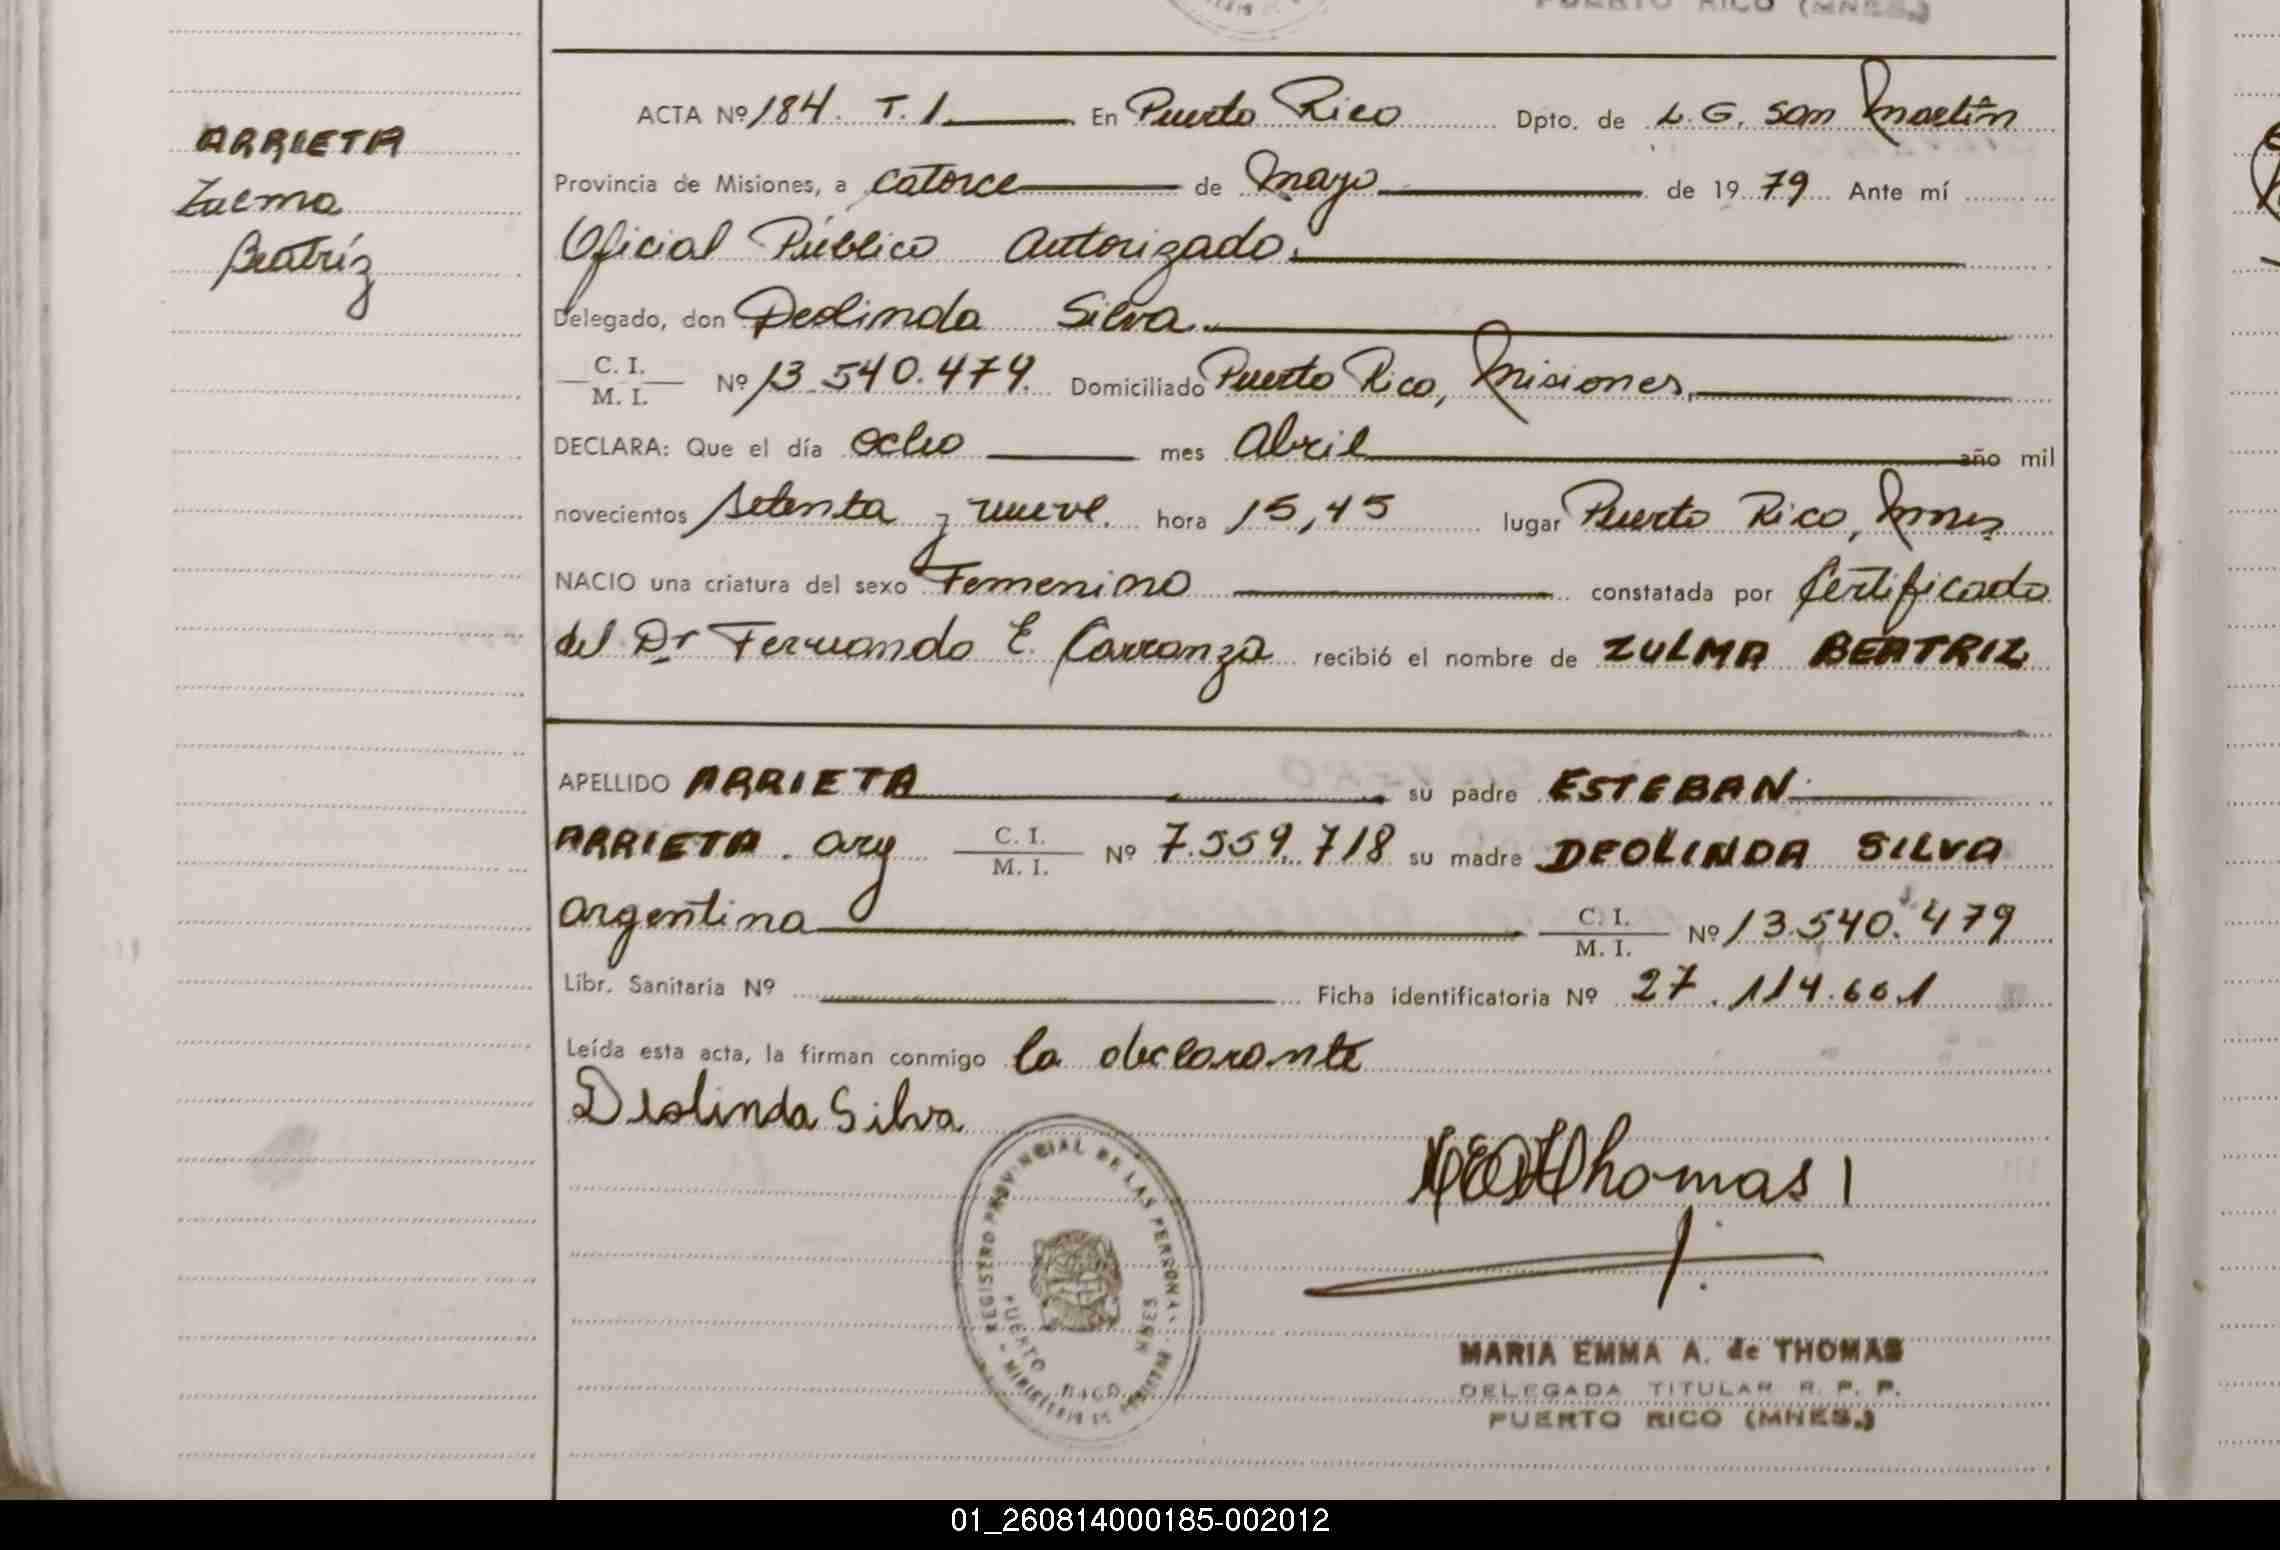 PUERTO RICO (MNES.)
ARRIETA
Zulma
Beatríz
ACTA Nº 184. T. 1. En Puerto Rico Dpto. de L. G. San Martín
Provincia de Misiones, a catorce de Mayo de 1979 Ante mí
Oficial Público Autorizado.
Delegado, don Deolinda Silva.
C. I.
M. I. Nº 13.540.479. Domiciliado Puerto Rico, Misiones,
DECLARA: Que el día ocho mes Abril año mil
novecientos setenta y nueve. hora 15,45 lugar Puerto Rico, Mnes
NACIO una criatura del sexo Femenino constatada por Certificado
del Dr Fernando E. Carranza recibió el nombre de ZULMA BEATRIZ
APELLIDO ARRIETA su padre ESTEBAN
ARRIETA. arg C. I. M. I. Nº 7.559.718 su madre DEOLINDA SILVA
argentina C. I. M. I. Nº 13.540.479
Libr. Sanitaria Nº Ficha identificatoria Nº 27.114.601
Leída esta acta, la firman conmigo la declarante
Deolinda Silva
Thomas
REGISTRO PROVINCIAL DE LAS PERSONAS
PUERTO RICO
MARIA EMMA A. de THOMAS
DELEGADA TITULAR R. P. P.
PUERTO RICO (MNES.)
01_260814000185-002012